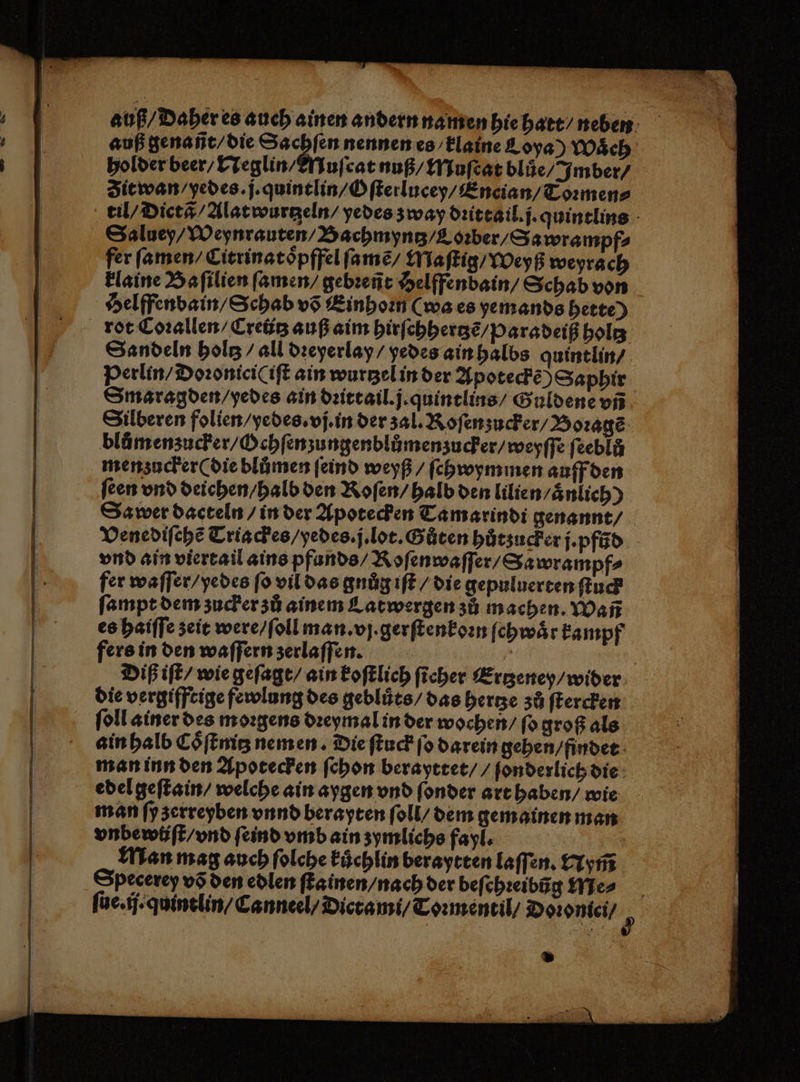 auß/Daher es auch ainen andern namen hie hatt/ neben
auß genañt/die Sachſen nennen es/klaine Loya) Wåch
holder beer/Neglin/Muſcat nuß/Muſcat blůe/Jmber/
Zitwan/yedes.j.quintlin/Oſterlucey/Encian/Toꝛmen⸗
til/Dictã/Alatwurtzeln/ yedes zway dꝛittail.j.quintlins
Saluey/Weynrauten/Bachmyntz/Loꝛber/Sawrampf⸗
fer ſamen/Citrinatoͤpffel ſamẽ/ Maſtig/Weyß weyrach
klaine Baſilien ſamen/ gebꝛeñt Helffenbain/Schab von
Helffenbain/Schab võ Einhoꝛn (wa es yemands hette)
rot Coꝛallen/Creütz auß aim hirſchhertzẽ/Paradeiß holtz
Sandeln holtz / all dꝛeyerlay / yedes ain halbs quintlin/
Perlin/Doꝛonici(iſt ain wurtzel in der Apoteckẽ)Saphir
Smaragden/yedes ain dꝛittail.j.quintlins/ Guldene vñ
Silberen folien/yedes.vj.in der zal. Roſenzucker/Boꝛagẽ
blůmenzucker/Ochſenzungenblůmenzucker/weyſſe ſeeblů
menzucker(die blůmen ſeind weyß / ſchwymmen auff den
ſeen vnd deichen/halb den Roſen/ halb den lilien/ånlich)
Sawer dacteln / in der Apotecken Tamarindi genannt/
Venediſchẽ Triackes/yedes.j.lot.Gůten hůtzucker j.pfũd
vnd ain viertail ains pfunds/ Roſenwaſſer/Sawrampf⸗
fer waſſer/yedes ſo vil das gnůg iſt / die gepuluerten ſtuck
ſampt dem zucker zů ainem Latwergen zů machen. Wañ
es haiſſe zeit were/ſoll man.vj.gerſtenkoꝛn ſchwår kampf
fers in den waſſern zerlaſſen.
Diß iſt/ wie geſagt/ ain koſtlich ſicher Ertzeney/wider
die vergifftige fewlung des geblůts/ das hertze zů ſtercken
ſoll ainer des moꝛgens dꝛeymal in der wochen/ ſo groß als
ain halb Coͤſtnitz nemen. Die ſtuck ſo darein gehen/findet
man inn den Apotecken ſchon berayttet/ / ſonderlich die
edel geſtain/ welche ain aygen vnd ſonder art haben/ wie
man ſy zerreyben vnnd berayten ſoll/ dem gemainen man
vnbewüſt/vnd ſeind vmb ain zymlichs fayl.
Man mag auch ſolche kůchlin beraytten laſſen. Nym̃
Specerey võ den edlen ſtainen/nach der beſchꝛeibũg Me⸗
ſue.ij.quintlin/Canneel/Dictami/Toꝛmentil/ Doꝛonici/